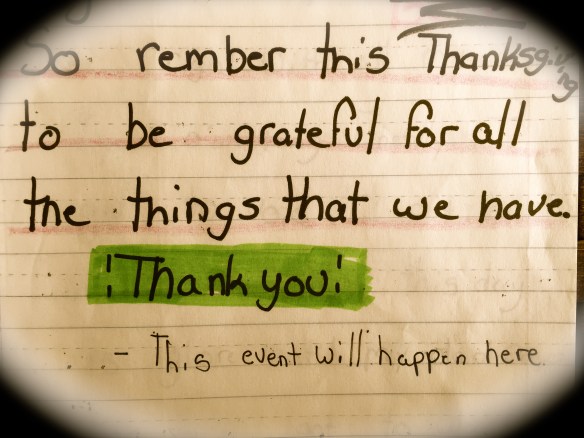 So rember this Thanksgiving
to be grateful for all
the things that we have.
¡Thank you!
- This event will happen here.